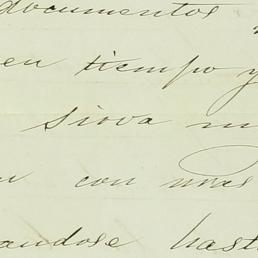 documentos
en tiempo y
sirva m
con unas
andose hast